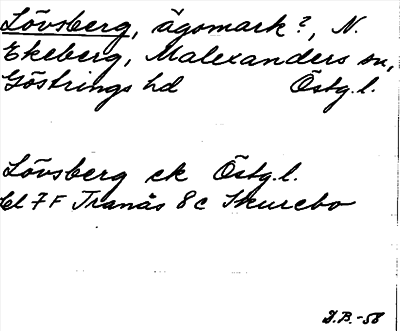 Lövsberg, ägomark?, N.
Ekeberg, Malexanders sn,
Göstrings hd Östg.l.
Lövsberg ek Östg.l.
bl 7F Tranås 8c Skurebo
D.B.-58